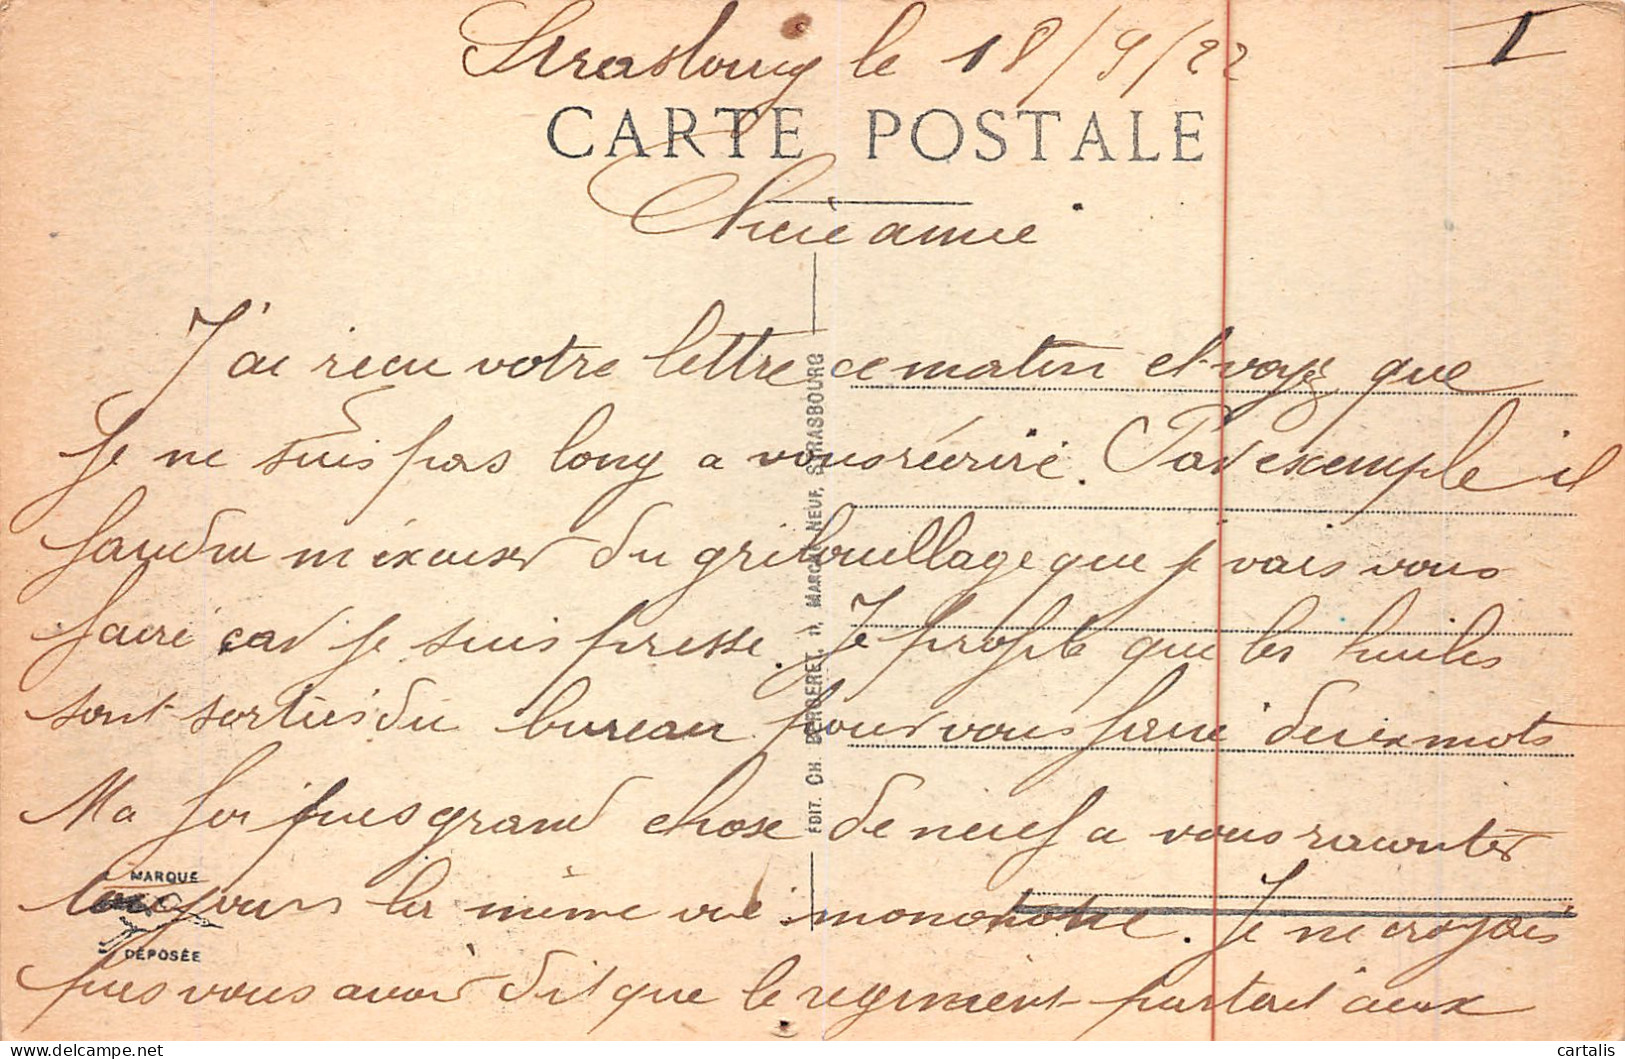 Strasbourg le 18/9/22
I
CARTE POSTALE
Chère amie
J'ai recu votre lettre ce matin et voyez que
je ne suis pas long a vous récrire. Par exemple il
faudra m'excuser du gribouillage que je vais vous
faire car je suis presse. Je profite que les huiles
sont sorties du bureau pour vous faire deux mots
Ma foi pas grand chose de neuf a vous raconter
toujours la même vie monotone. Je ne croyais
pas vous avoir dit que le regiment partait aux
MARQUE
DÉPOSÉE
EDIT. CH. BERGERET, 11, MARCHÉ-NEUF, STRASBOURG
cartalis